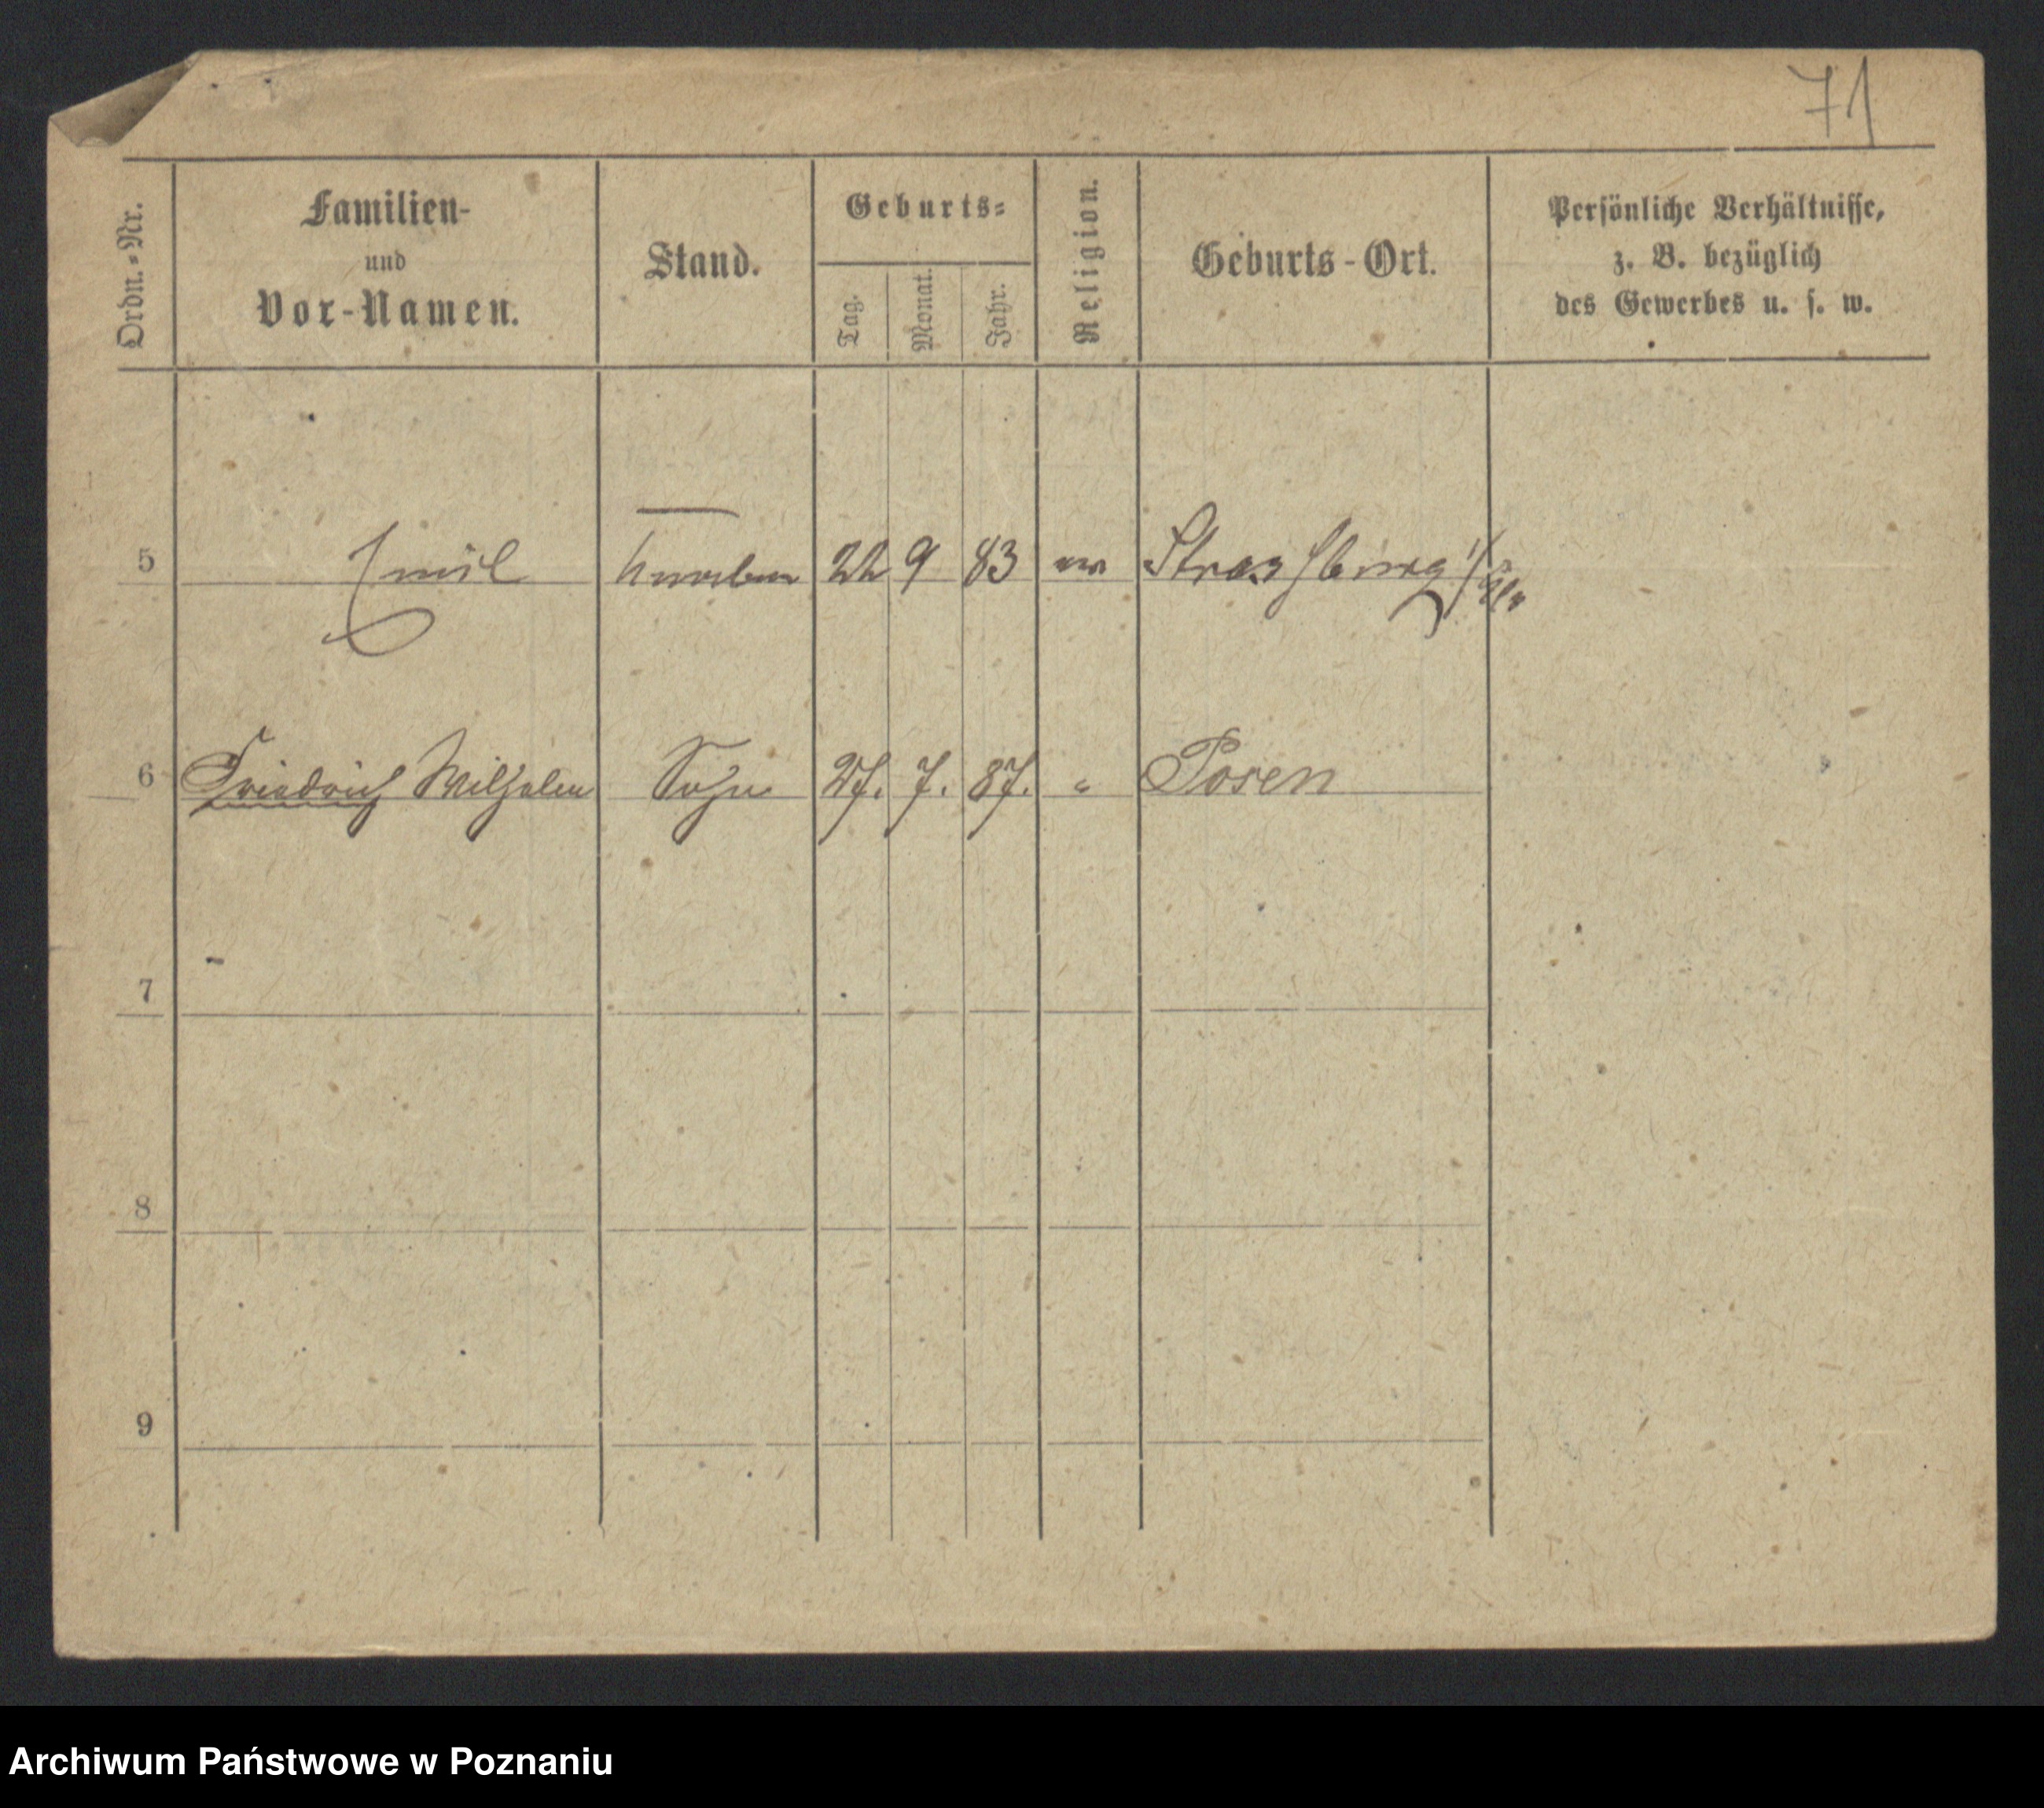 71
Ordn.-Nr.
Familien-
und
Vor-Namen.
Stand.
Geburts-
Tag.
Monat.
Jahr.
Religion.
Geburts-Ort.
Persönliche Verhältnisse,
z. B. bezüglich
des Gewerbes u. s. w.
5 Emil 22 9 83 Strassburg i/
6 Friedrich Wilhelm Sohn 27. 7. 87. " Posen
7
8
9
Archiwum Państwowe w Poznaniu